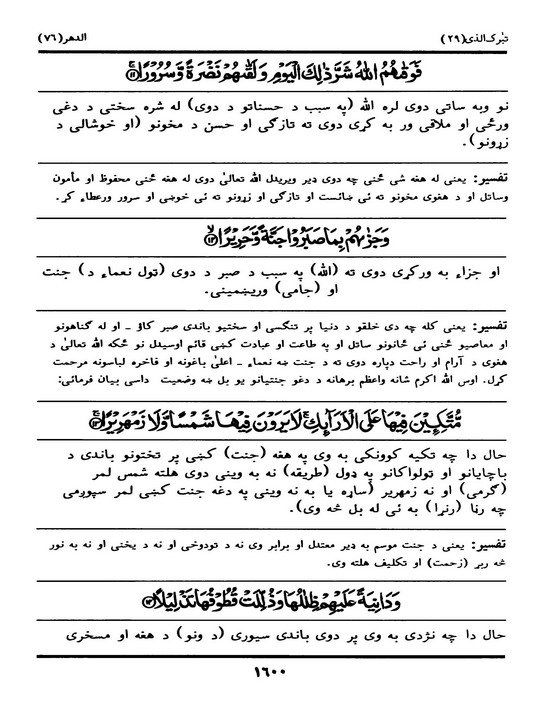 تبرك الذي (٢٩)
الدهر (٧٦)
فَوَقٰىهُمُ اللّٰهُ شَرَّ ذٰلِكَ الْيَوْمِ وَلَقّٰىهُمْ نَضْرَةً وَّسُرُوْرًا ﴿١١﴾
نو وبه ساتی دوی لره الله (په سبب د حسناتو د دوی) له شره سختی د دغی
ورځی او ملاقي ور به کړی دوی ته تازگی او حسن د مخونو (او خوشالی د
زړونو).
تفسیر: یعنی له هغه شی ځنی چه دوی ډیر ویریدل الله تعالیٰ دوی له هغه ځنی محفوظ او مأمون
وساتل او د هغوی مخونو ته ئی ښائست او تازگی او زړونو ته ئی خوښی او سرور ورعطاء کړ.
وَجَزٰىهُمْ بِمَا صَبَرُوْا جَنَّةً وَّحَرِيْرًا ﴿١٢﴾
او جزاء به ورکړی دوی ته (الله) په سبب د صبر د دوی (ټول نعماء د) جنت
او (جامی) وریښمینی.
تفسیر: یعنی کله چه دی خلقو د دنیا پر تنگسی او سختیو باندی صبر کاؤ ـ او له گناهونو
او معاصیو ځنی ئی ځانونو ساتل او په طاعت او عبادت کښی قائم اوسیدل نو ځکه الله تعالیٰ د
هغوی د آرام او راحت دپاره دوی ته د جنت ښه نعماء ـ اعلیٰ باغونه او فاخره لباسونه مرحمت
کړل. اوس الله اکرم شانه واعظم برهانه د دغو جنتیانو یو بل ښه وضعیت داسی بیان فرمائی:
مُّتَّكِـِٕيْنَ فِيْهَا عَلَى الْاَرَآئِكِ لَا يَرَوْنَ فِيْهَا شَمْسًا وَّلَا زَمْهَرِيْرًا ﴿١٣﴾
حال دا چه تکیه کوونکی به وی په هغه (جنت) کښی پر تختونو باندی د
باچایانو او تولواکانو په ډول (طریقه) نه به وینی دوی هلته شمس لمر
(گرمی) او نه زمهریر (ساړه یا به نه وینی په دغه جنت کښی لمر سپوږمی
چه رڼا (رنړا) به ئی له بل څه وی).
تفسیر: یعنی د جنت موسم به ډیر معتدل او برابر وی نه د تودوخی او نه د یخنی او نه به نور
څه ربړ (زحمت) او تکلیف هلته وی.
وَدَانِيَةً عَلَيْهِمْ ظِلٰلُهَا وَذُلِّلَتْ قُطُوْفُهَا تَذْلِيْلًا ﴿١٤﴾
حال دا چه نژدی به وی پر دوی باندی سیوری (د ونو) د هغه او مسخری
١٦٠٠